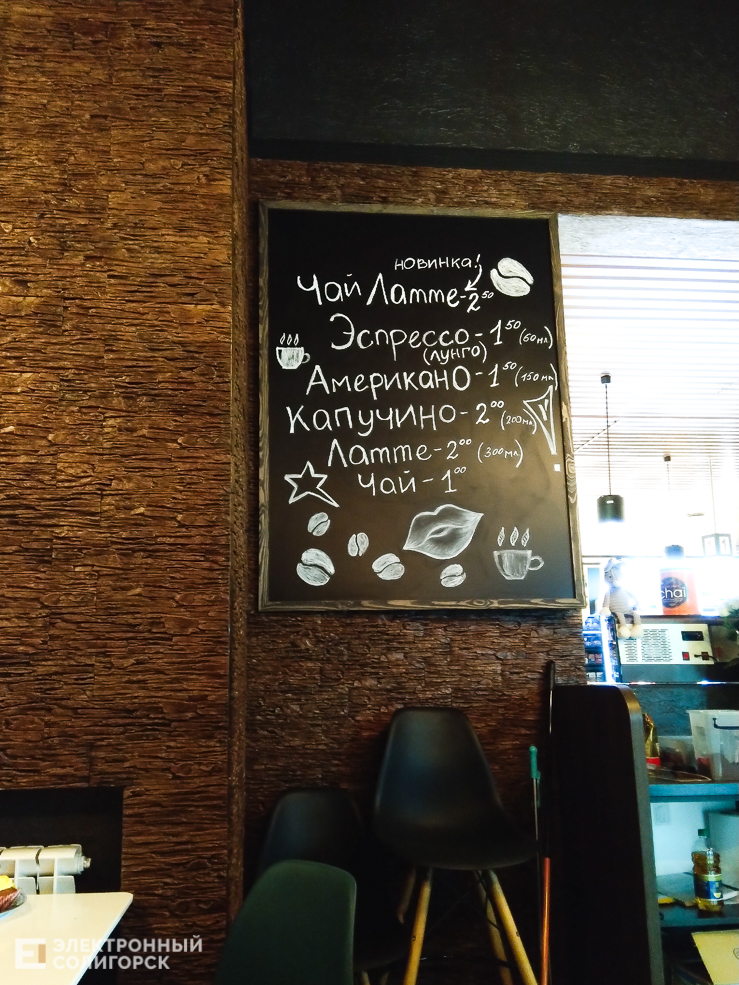 новинка!
Чай Латте - 2 50
Эспрессо - 1 50 (60мл)
(лунго)
Американо - 1 50 (150мл)
Капучино - 2 00 (200мл)
Латте - 2 00 (300мл)
Чай - 1 00
chai
ЭЛЕКТРОННЫЙ
СОЛИГОРСК